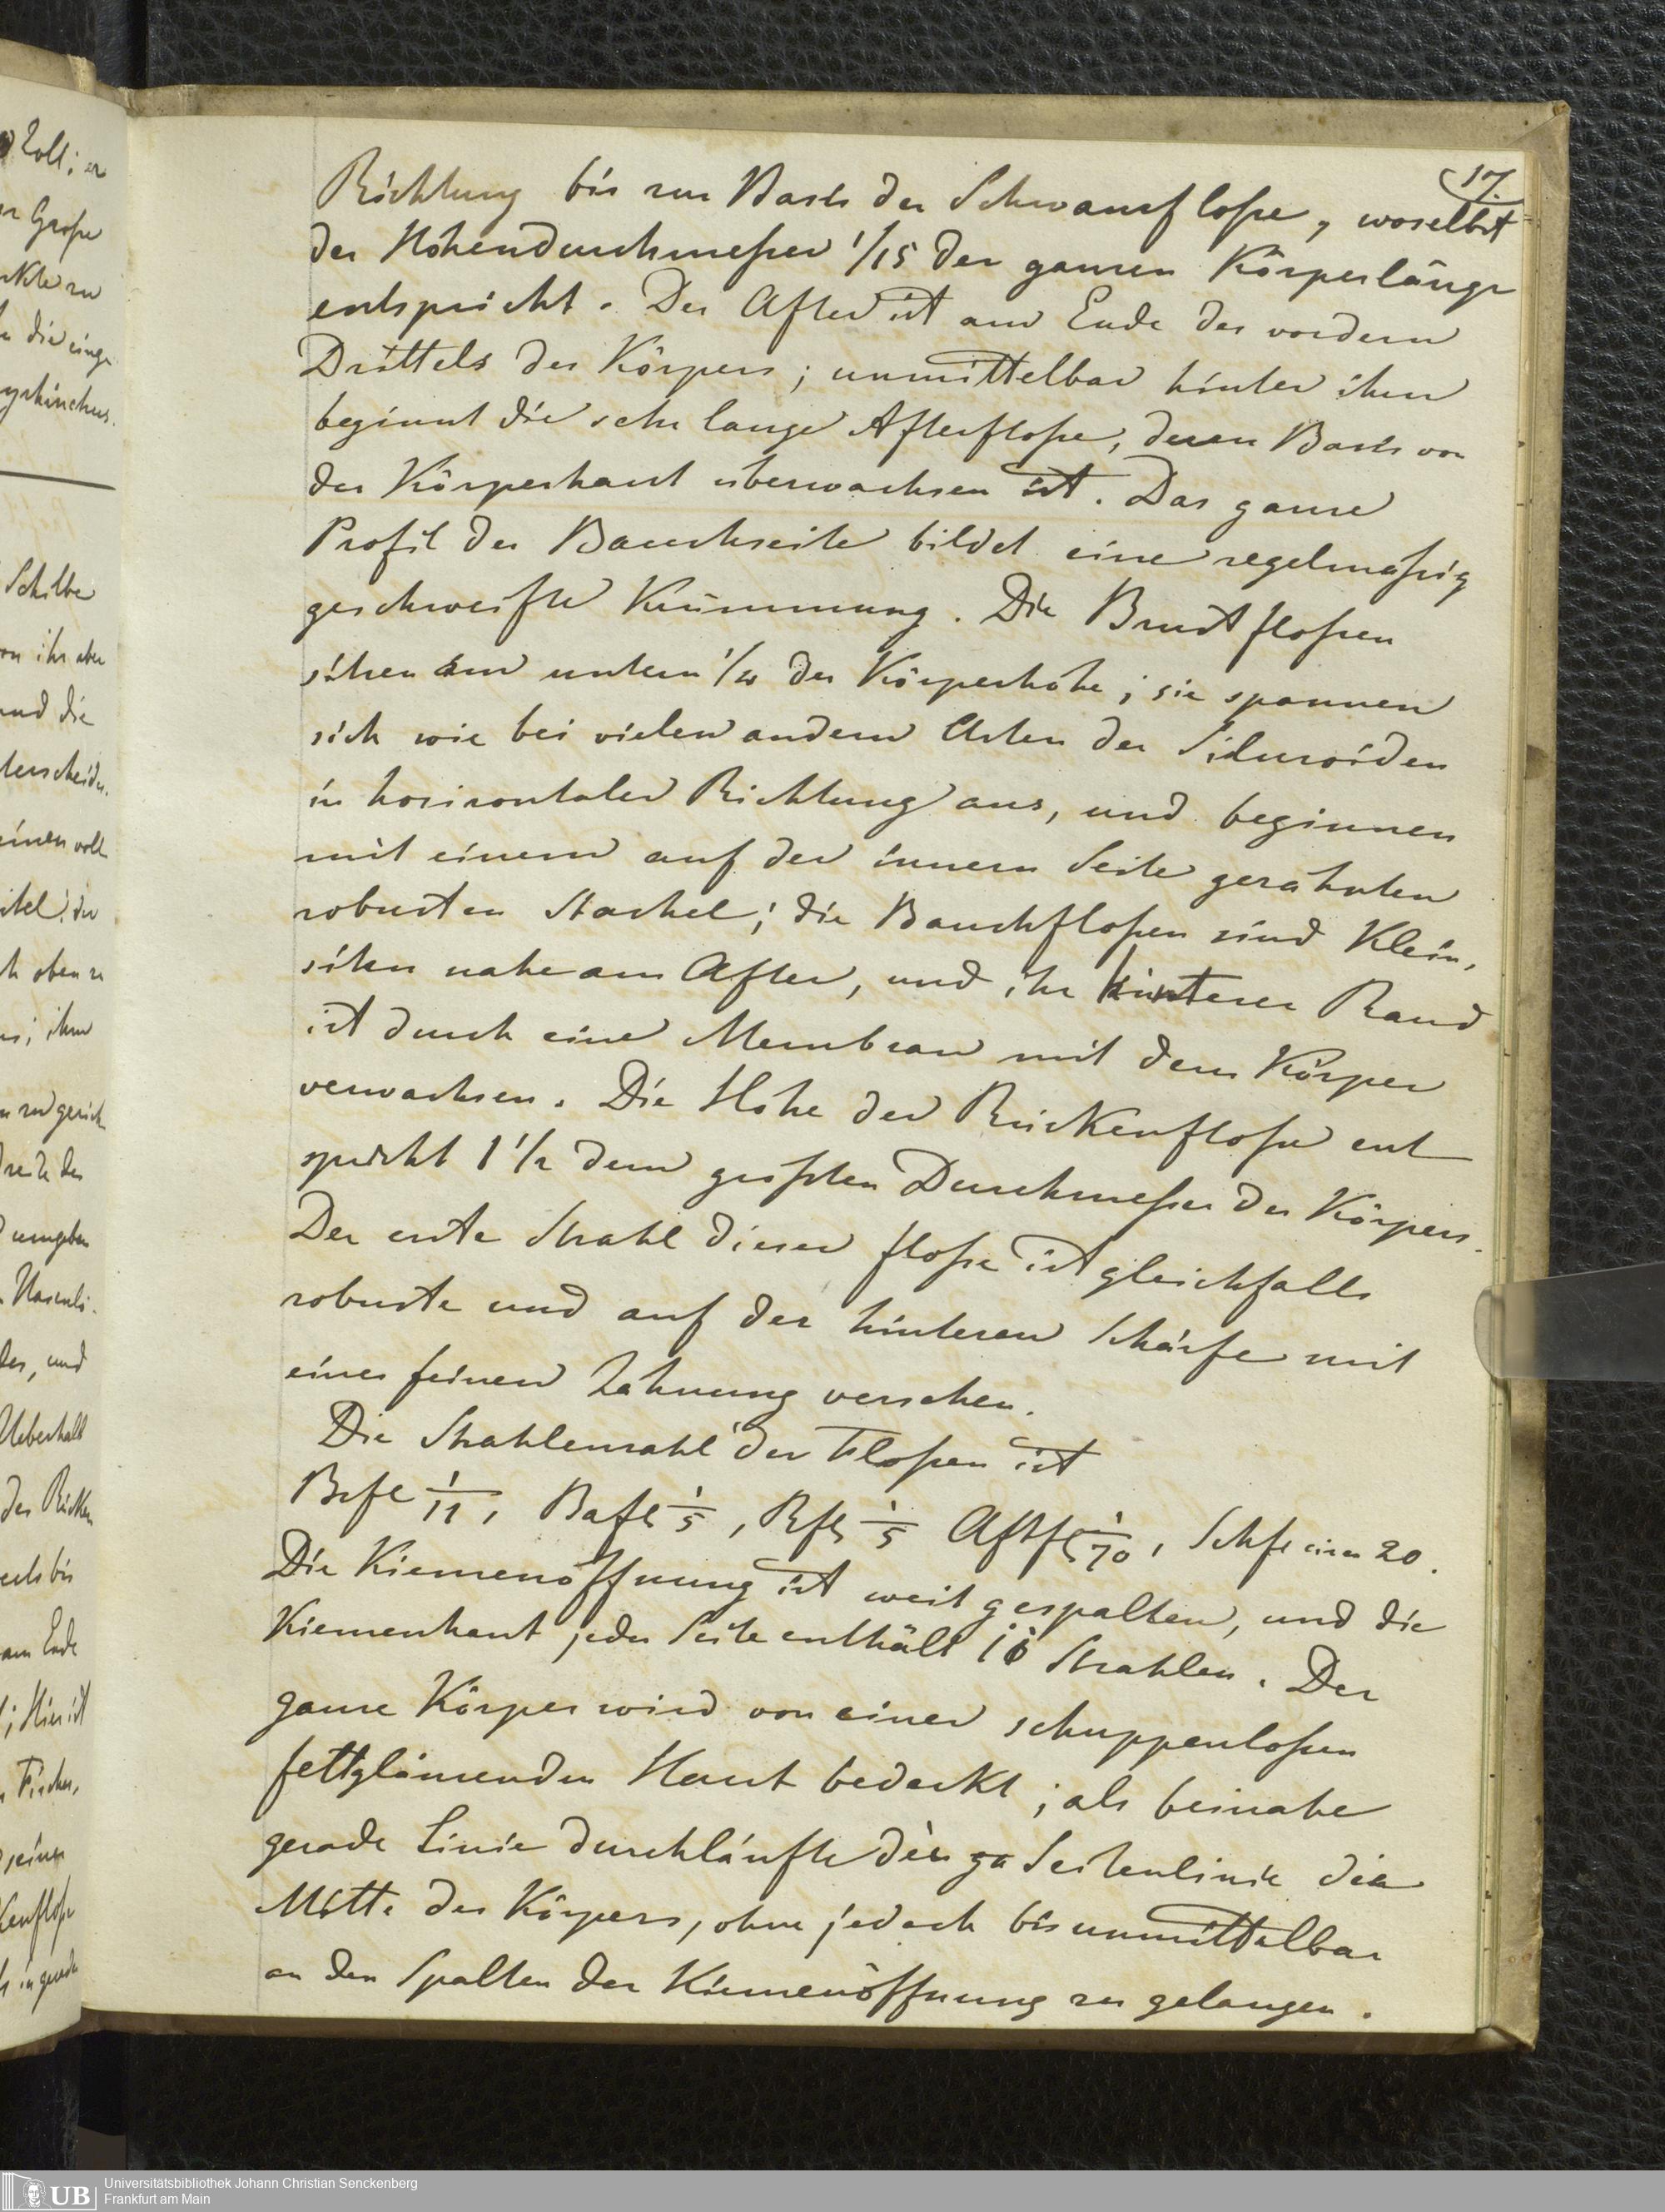 17.
Richtung bis zur Basis der Schwanzfloße, woselbst
der Höhendurchmeßer 1/15 der ganzen Körperlänge
entspricht. Der After ist am Ende des vordern
Drittels des Körpers; unmittelbar hinter ihm
beginnt die sehr lange Afterfloße, deren Basis von
der Körperhaut überwachsen ist. Das ganze
Profil der Bauchseite bildet eine regelmäßig
geschweifte Krümmung. Die Brustfloßen
sitzen am untern der Körperhöhe; sie spannen
sich wie bei vielen andern Arten der Siluroiden
in horizontaler Richtung aus, und beginnen
mit einem auf der innern Seite gezähnten
robusten Stachel; die Bauchfloßen sind klein,
sitzen nahe am After, und ihr hinterer Rand
ist durch eine Membran mit dem Körper
verwachsen. Die Höhe der Rückenfloße ent
spricht 1 1/2 dem größten Durchmeßer des Körpers.
Der erste Strahl dieser floße ist gleichfalls
robuste und auf der hinteren Schärfe mit
einer feinen Zähnung versehen.
Die Strahlenzahl der Floßen ist
Brfl 1/11, Bafl 1/5, Rfl 1/5 Aftfl 1/70, Schfl circa 20.
Die Kiemenöffnung ist weit gespalten, und die
Kiemenhaut jeder Seite enthält 10 Strahlen. Der
ganze Körper wird von einer schuppenloßen
fettglänzenden Haut bedeckt; als beinahe
gerade Linie durchläufte die ga Seitenlinie die
Mitte des Körpers, ohne jedoch bis unmittelbar
an den Spalten der Kiemenöffnung zu gelangen.
Zoll; er
Große
die einge
Schilbe
von ihr aber
und die
terscheide.
einen voll
oben zu
ihm
umgeben
des, und
Ueberhalt
des Rücken
am Ende
Hier ist
Fischer,
seiner
in gerade
UB
Universitätsbibliothek Johann Christian Senckenberg
Frankfurt am Main